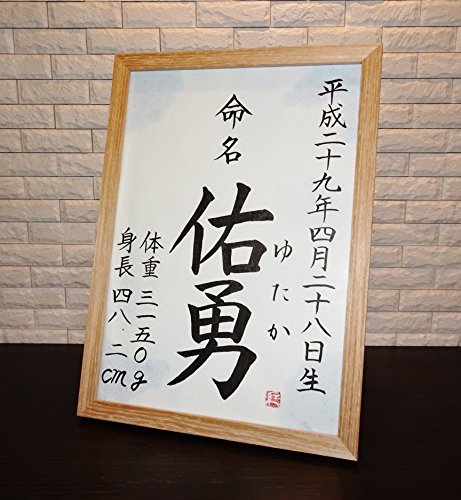 平成二十九年四月二十八日生
命名
佑勇
ゆたか
体重 三一五〇g
身長 四八.二cm